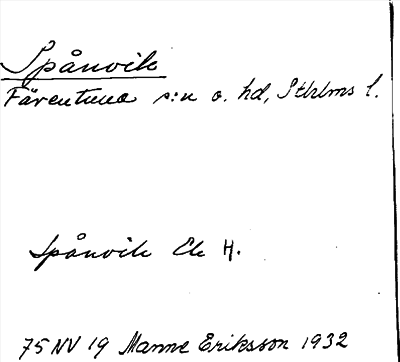 Spånvik
Färentuna s:n o. hd, Sthlms l.
Spånvik Ek H.
75 NV 19 Manne Eriksson 1932